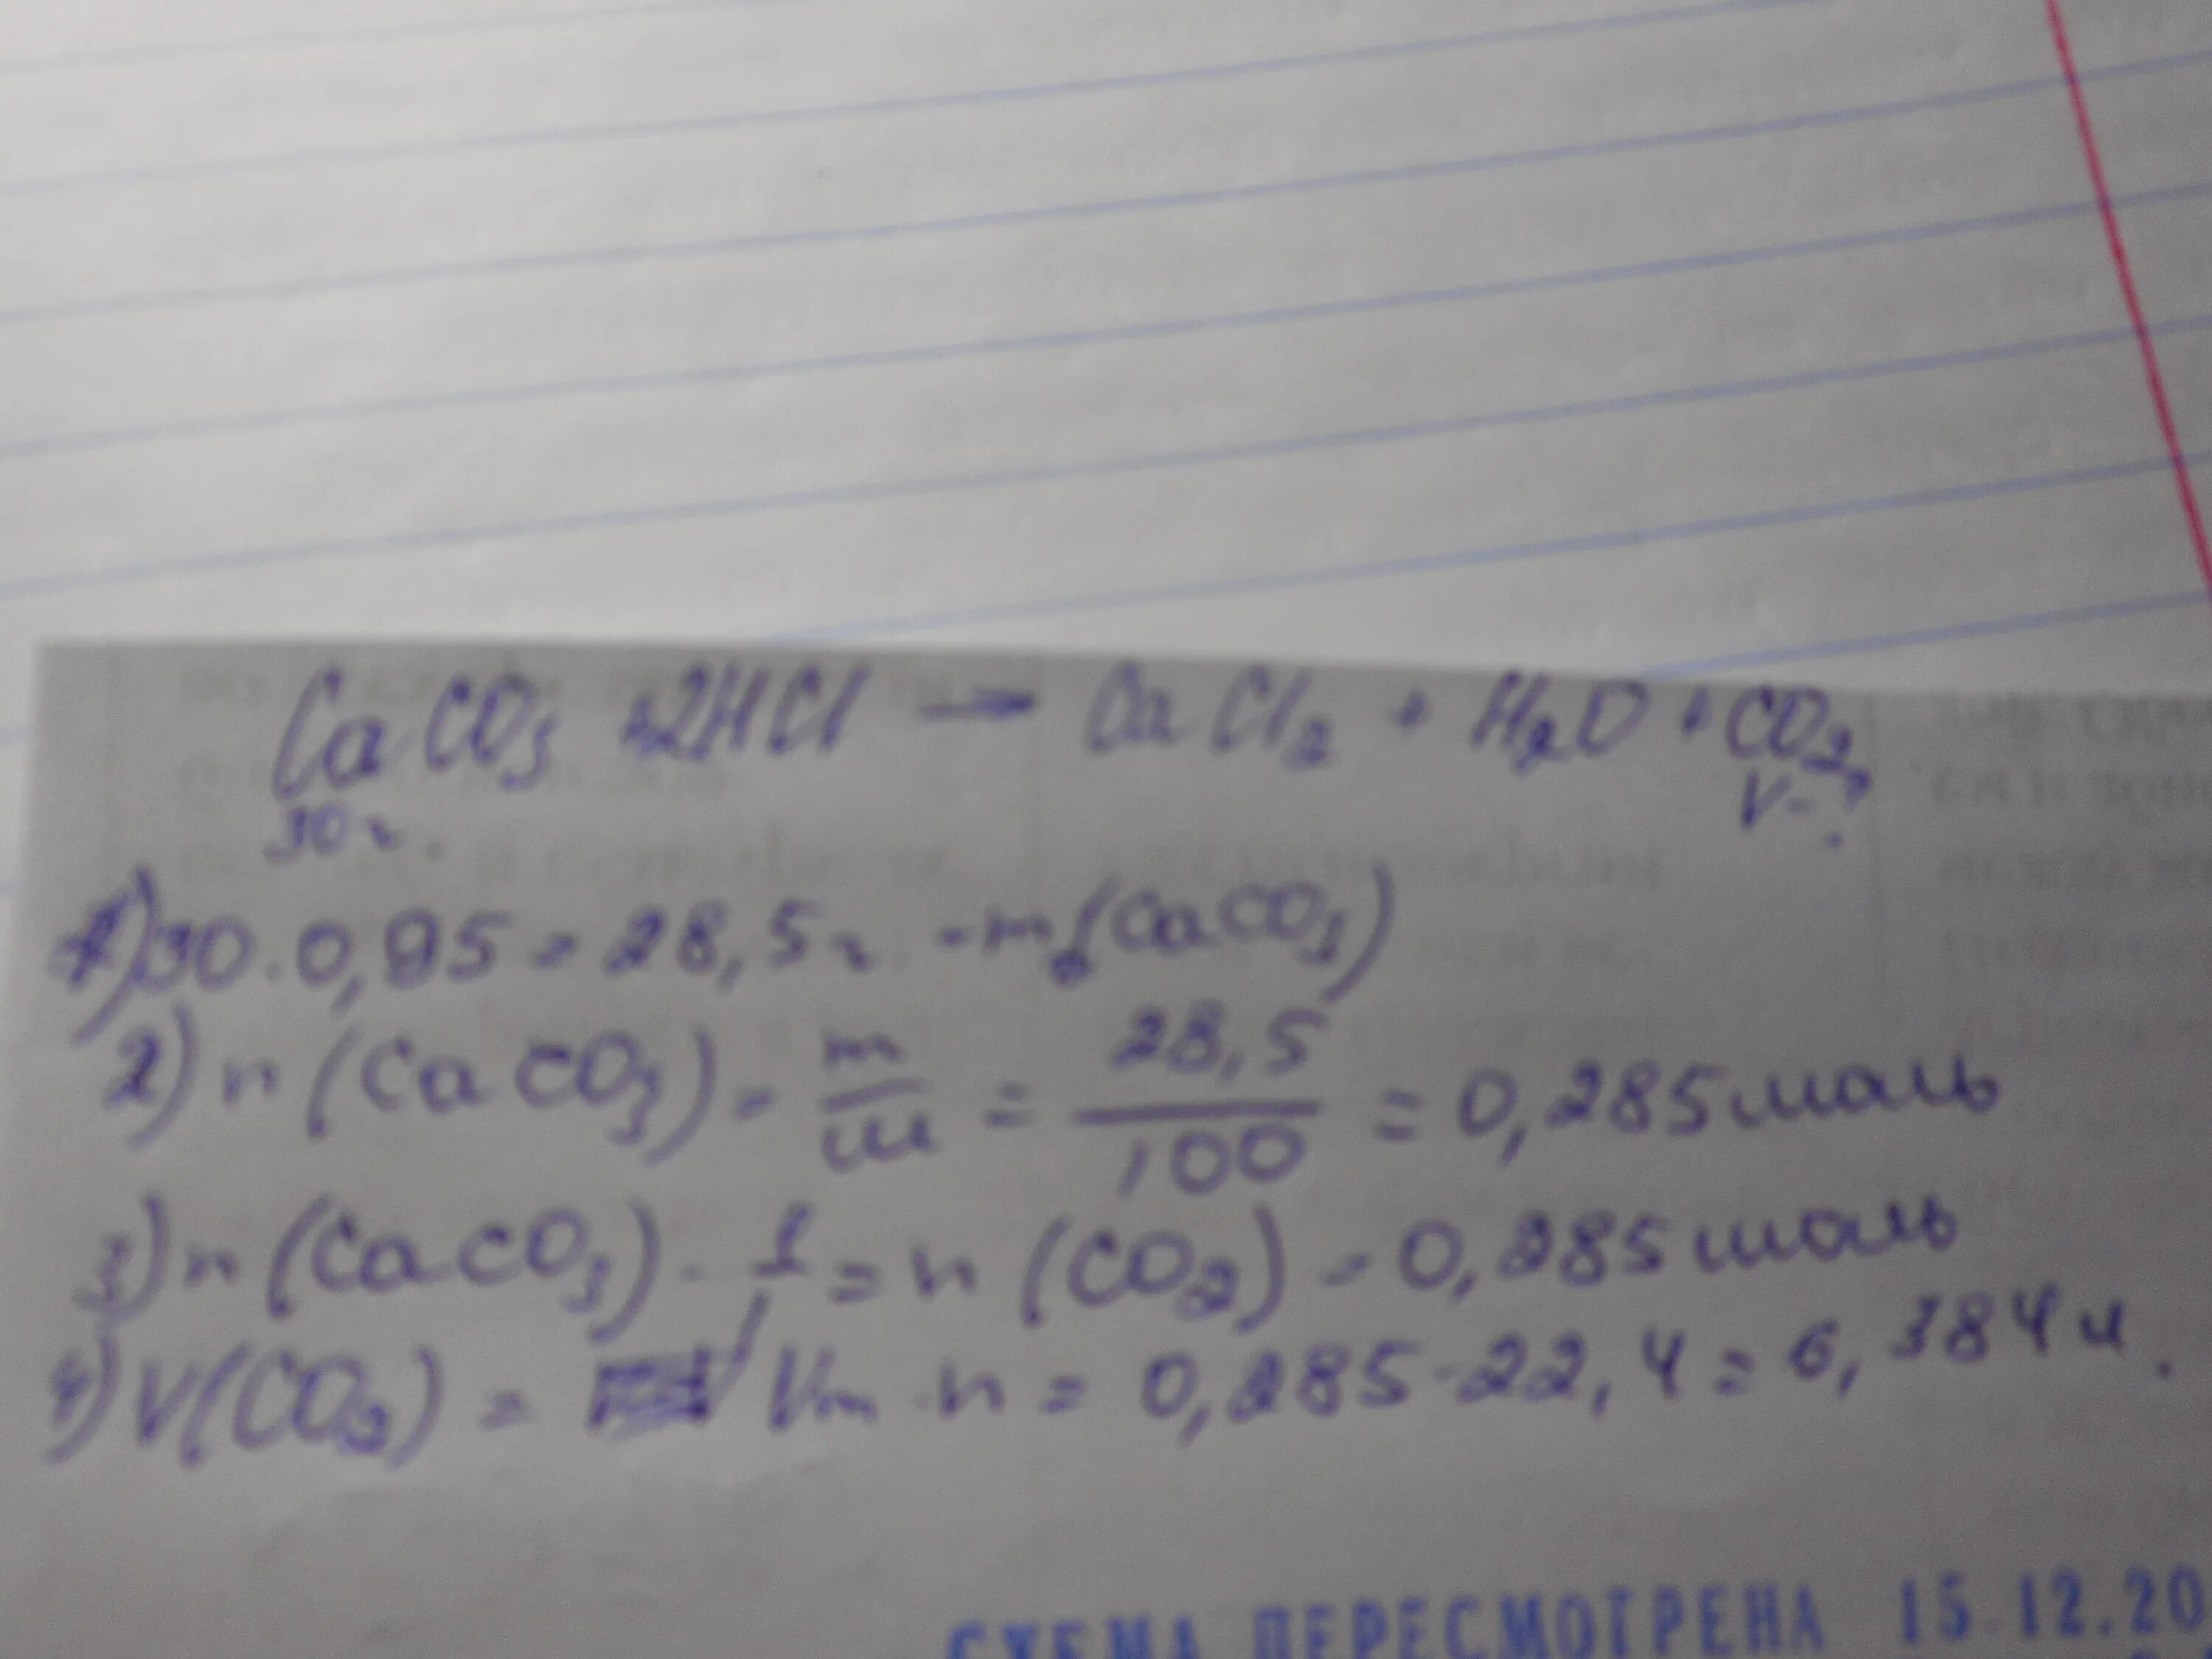 CaCO₃ + 2HCl → CaCl₂ + H₂O + CO₂
30г. V-?
1) 30 · 0,95 = 28,5г. - m (CaCO₃)
2) n (CaCO₃) = m/M = 28,5/100 = 0,285 моль
3) n (CaCO₃) · 1/1 = n (CO₂) = 0,285 моль
4) V(CO₂) = Vm · n = 0,285 · 22,4 = 6,384 л.
СХЕМА ПЕРЕСМОТРЕНА 15.12.20